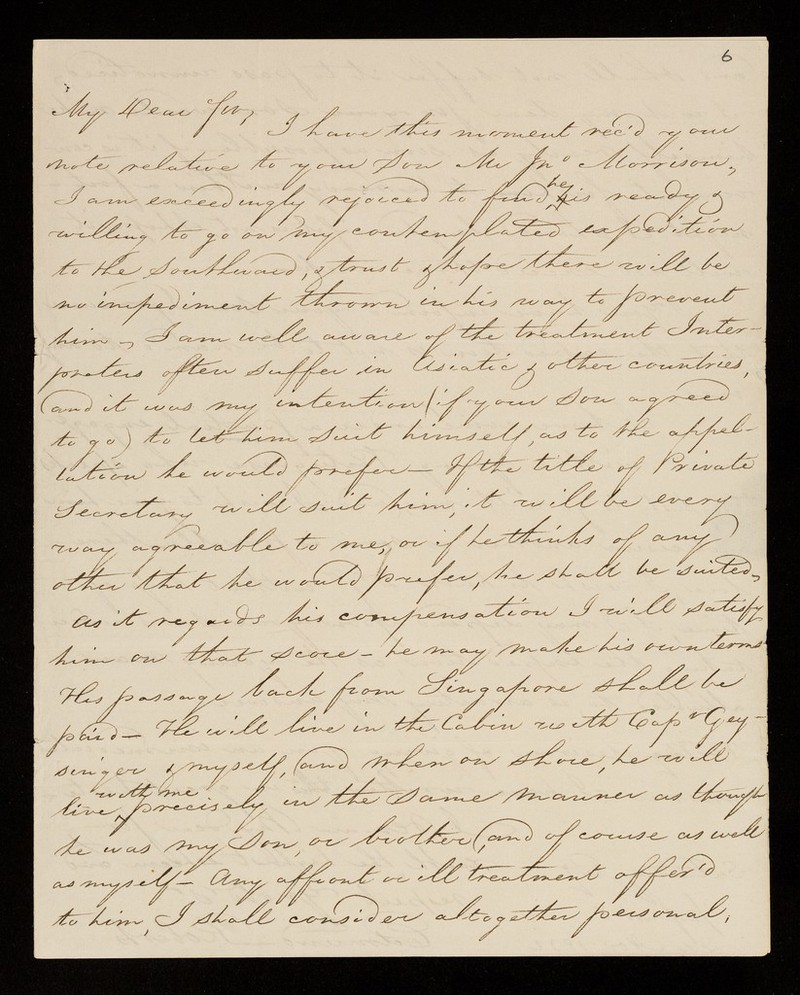 6
My Dear Sir,
I have this moment rec'd your
note relative to your Son Mr Jno Morrison,
I am exceedingly rejoiced to find he is ready &
willing to go on my contemplated expedition
to the Southward, & trust & hope there will be
no impediment thrown in his way to prevent
him - I am well aware of the treatment Inter-
preters often suffer in Asiatic & other countries,
and it was my intention (if your Son agreed
to go) to let him suit himself, as to the appel-
lation he would prefer - If the title of Private
Secretary will suit him, it will be every
way agreeable to me, or if he thinks of any
other that he would prefer, he shall be suited,
as it regards his compensation I will satisfy
him on that score - he may make his own terms
His passage back from Singapore shall be
paid - He will live in the Cabin with Capt Gey-
singer & myself, and when on shore, he will
live with me precisely in the same manner as though
he was my Son, or brother, and of course as well
as myself - Any affront or ill treatment offer'd
to him, I shall consider altogether personal,